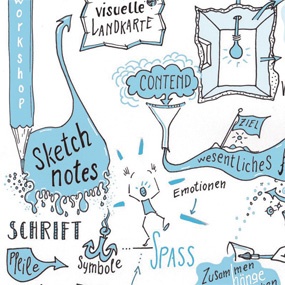 workshop
visuelle
LANDKARTE
CONTEND
ZIEL
Sketch
notes
wesentliches
Emotionen
SCHRIFT
Pfeile
Symbole
SPASS
Zusammen
hänge